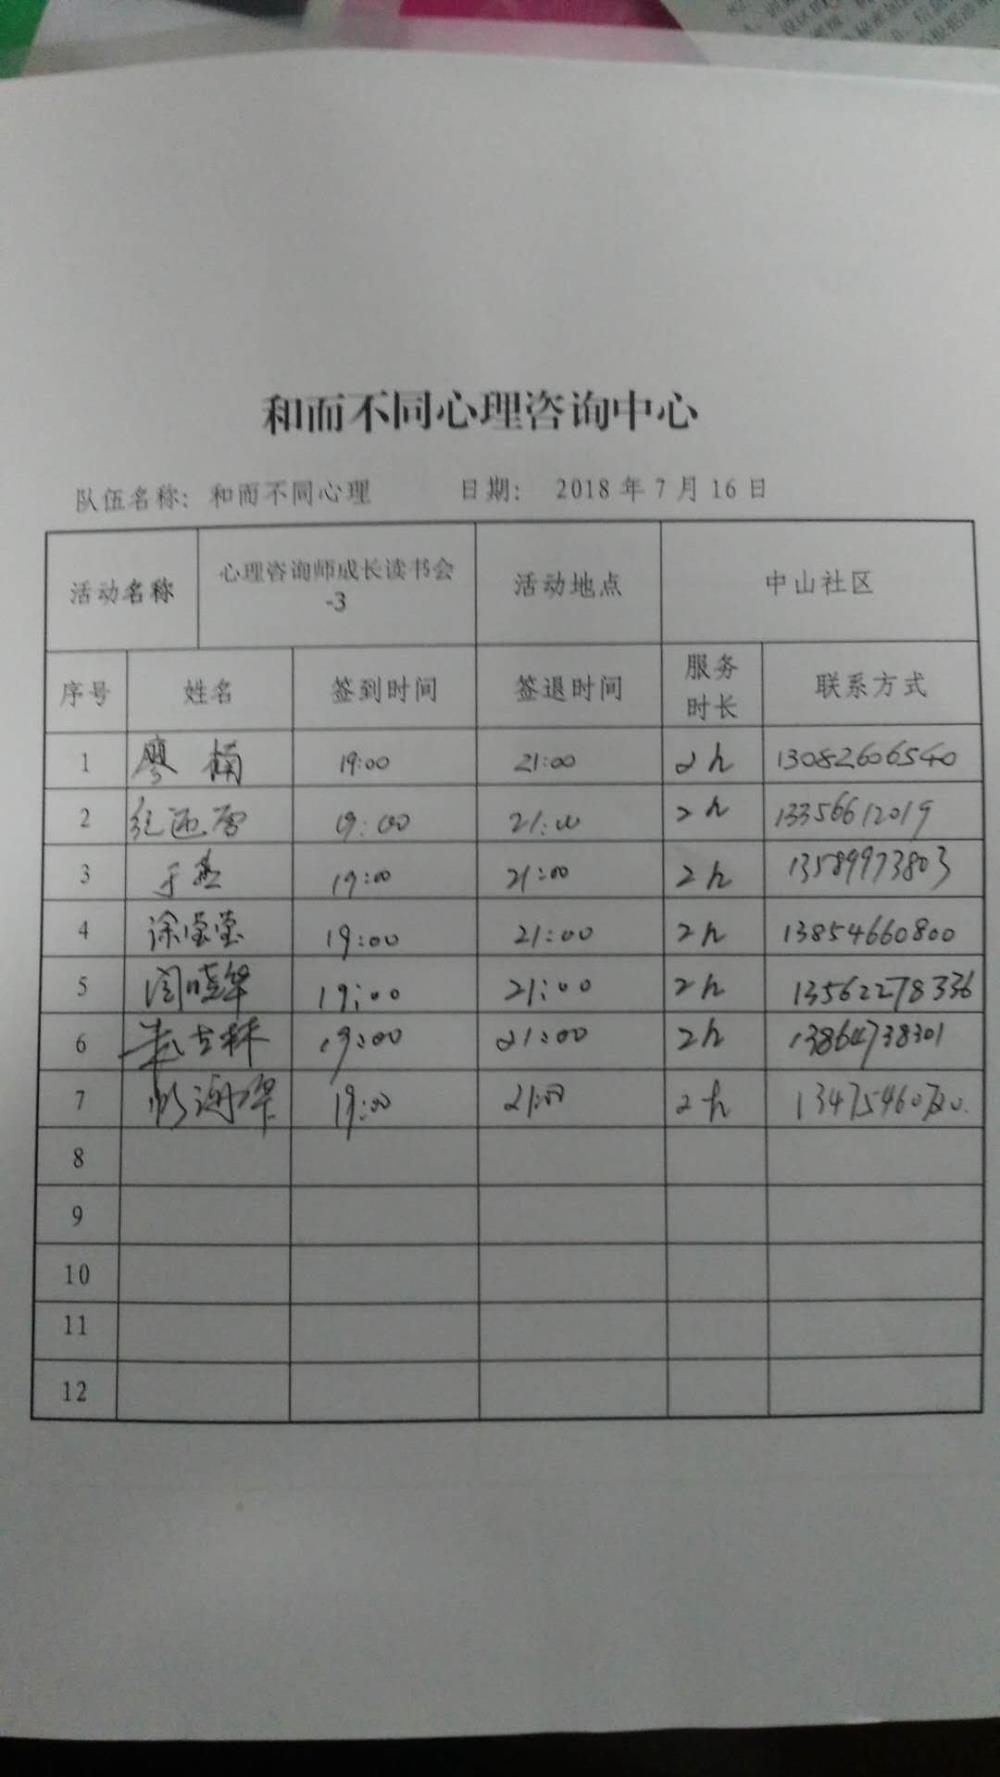 和而不同心理咨询中心
队伍名称: 和而不同心理 日期: 2018 年 7 月 16 日
活动名称 心理咨询师成长读书会-3 活动地点 中山社区
序号 姓名 签到时间 签退时间 服务时长 联系方式
1 廖楠 19:00 21:00 2h 13082606540
2 19:00 21:00 2h 13356612019
3 于燕 19:00 21:00 2h 13589973803
4 徐莹莹 19:00 21:00 2h 13854660800
5 闫晓华 19:00 21:00 2h 13562278336
6 19:00 21:00 2h 13864738301
7 19:00 21:00 2h
8
9
10
11
12